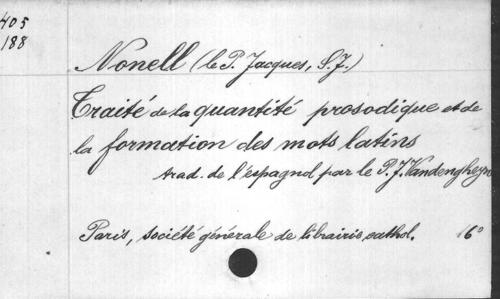 405
188
Nonell (le P. Jacques, S.J.)
Traité de la quantité prosodique et de
la formation des mots latins
trad. de l'espagnol par le P. J. Vandengheyn
Paris, société générale de librairie cathol. 16°